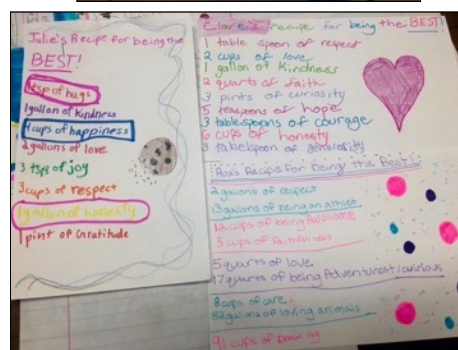 Julie's Recipe for being the
BEST!
tsp of hugs
1 gallon of Kindness
4 cups of happiness
2 gallons of love
3 tsps of joy
3 cups of respect
1 gallon of honesty
1 pint of Gratitude
Clare's recipe for being the BEST!
1 table spoon of respect
2 cups of love
1 gallon of Kindness
2 quarts of faith
3 pints of curiosity
5 teaspoons of hope
3 tablespoons of courage
6 cups of honesty
3 tablespoon of generosity
Recipe for being the Best!
2 gallons of respect
13 gallons of being an artist
12 cups of being Awesome
3 cups of
5 quarts of love
17 quarts of being Adventurest
8 cups of care.
82 gallons of loving animals
91 cups of